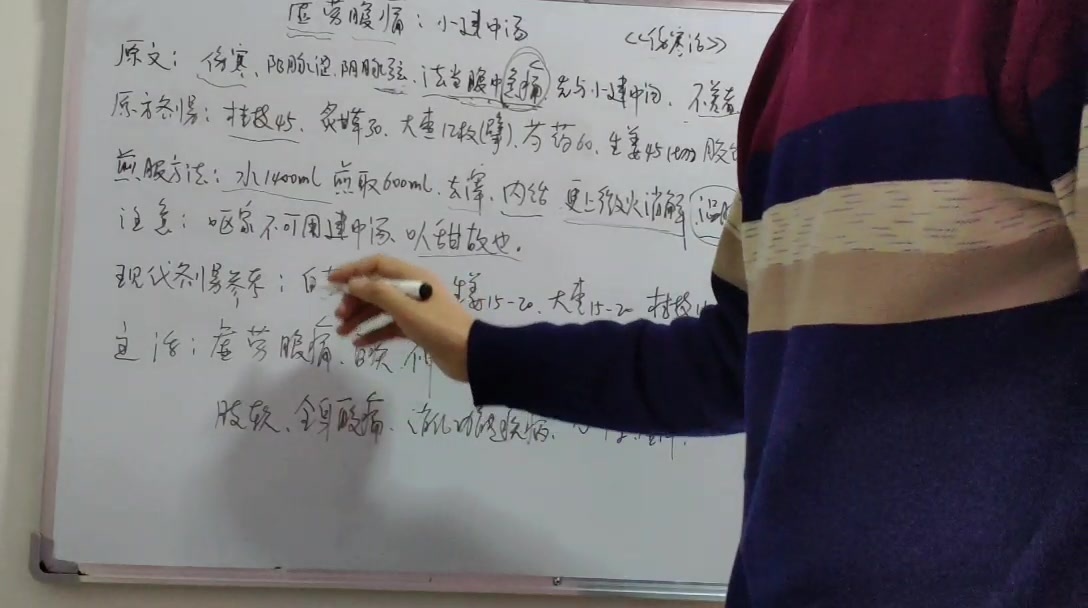 虚劳腹痛：小建中汤 《伤寒论》
原文：伤寒、阳脉涩、阴脉弦、法当腹中急痛、先与小建中汤、不差者
原方剂量：桂枝45、炙甘草30、大枣12枚(擘)、芍药60、生姜45(切) 胶
煎服方法：水1400ml 煎取600ml、去滓、内饴 更上微火消解 温服
注意：呕家不可用建中汤、以甜故也。
现代剂量参考：白 生姜15-20、大枣15-20 桂枝
主治：虚劳腹痛、
肢软、全身酸痛、消化功能疾病、